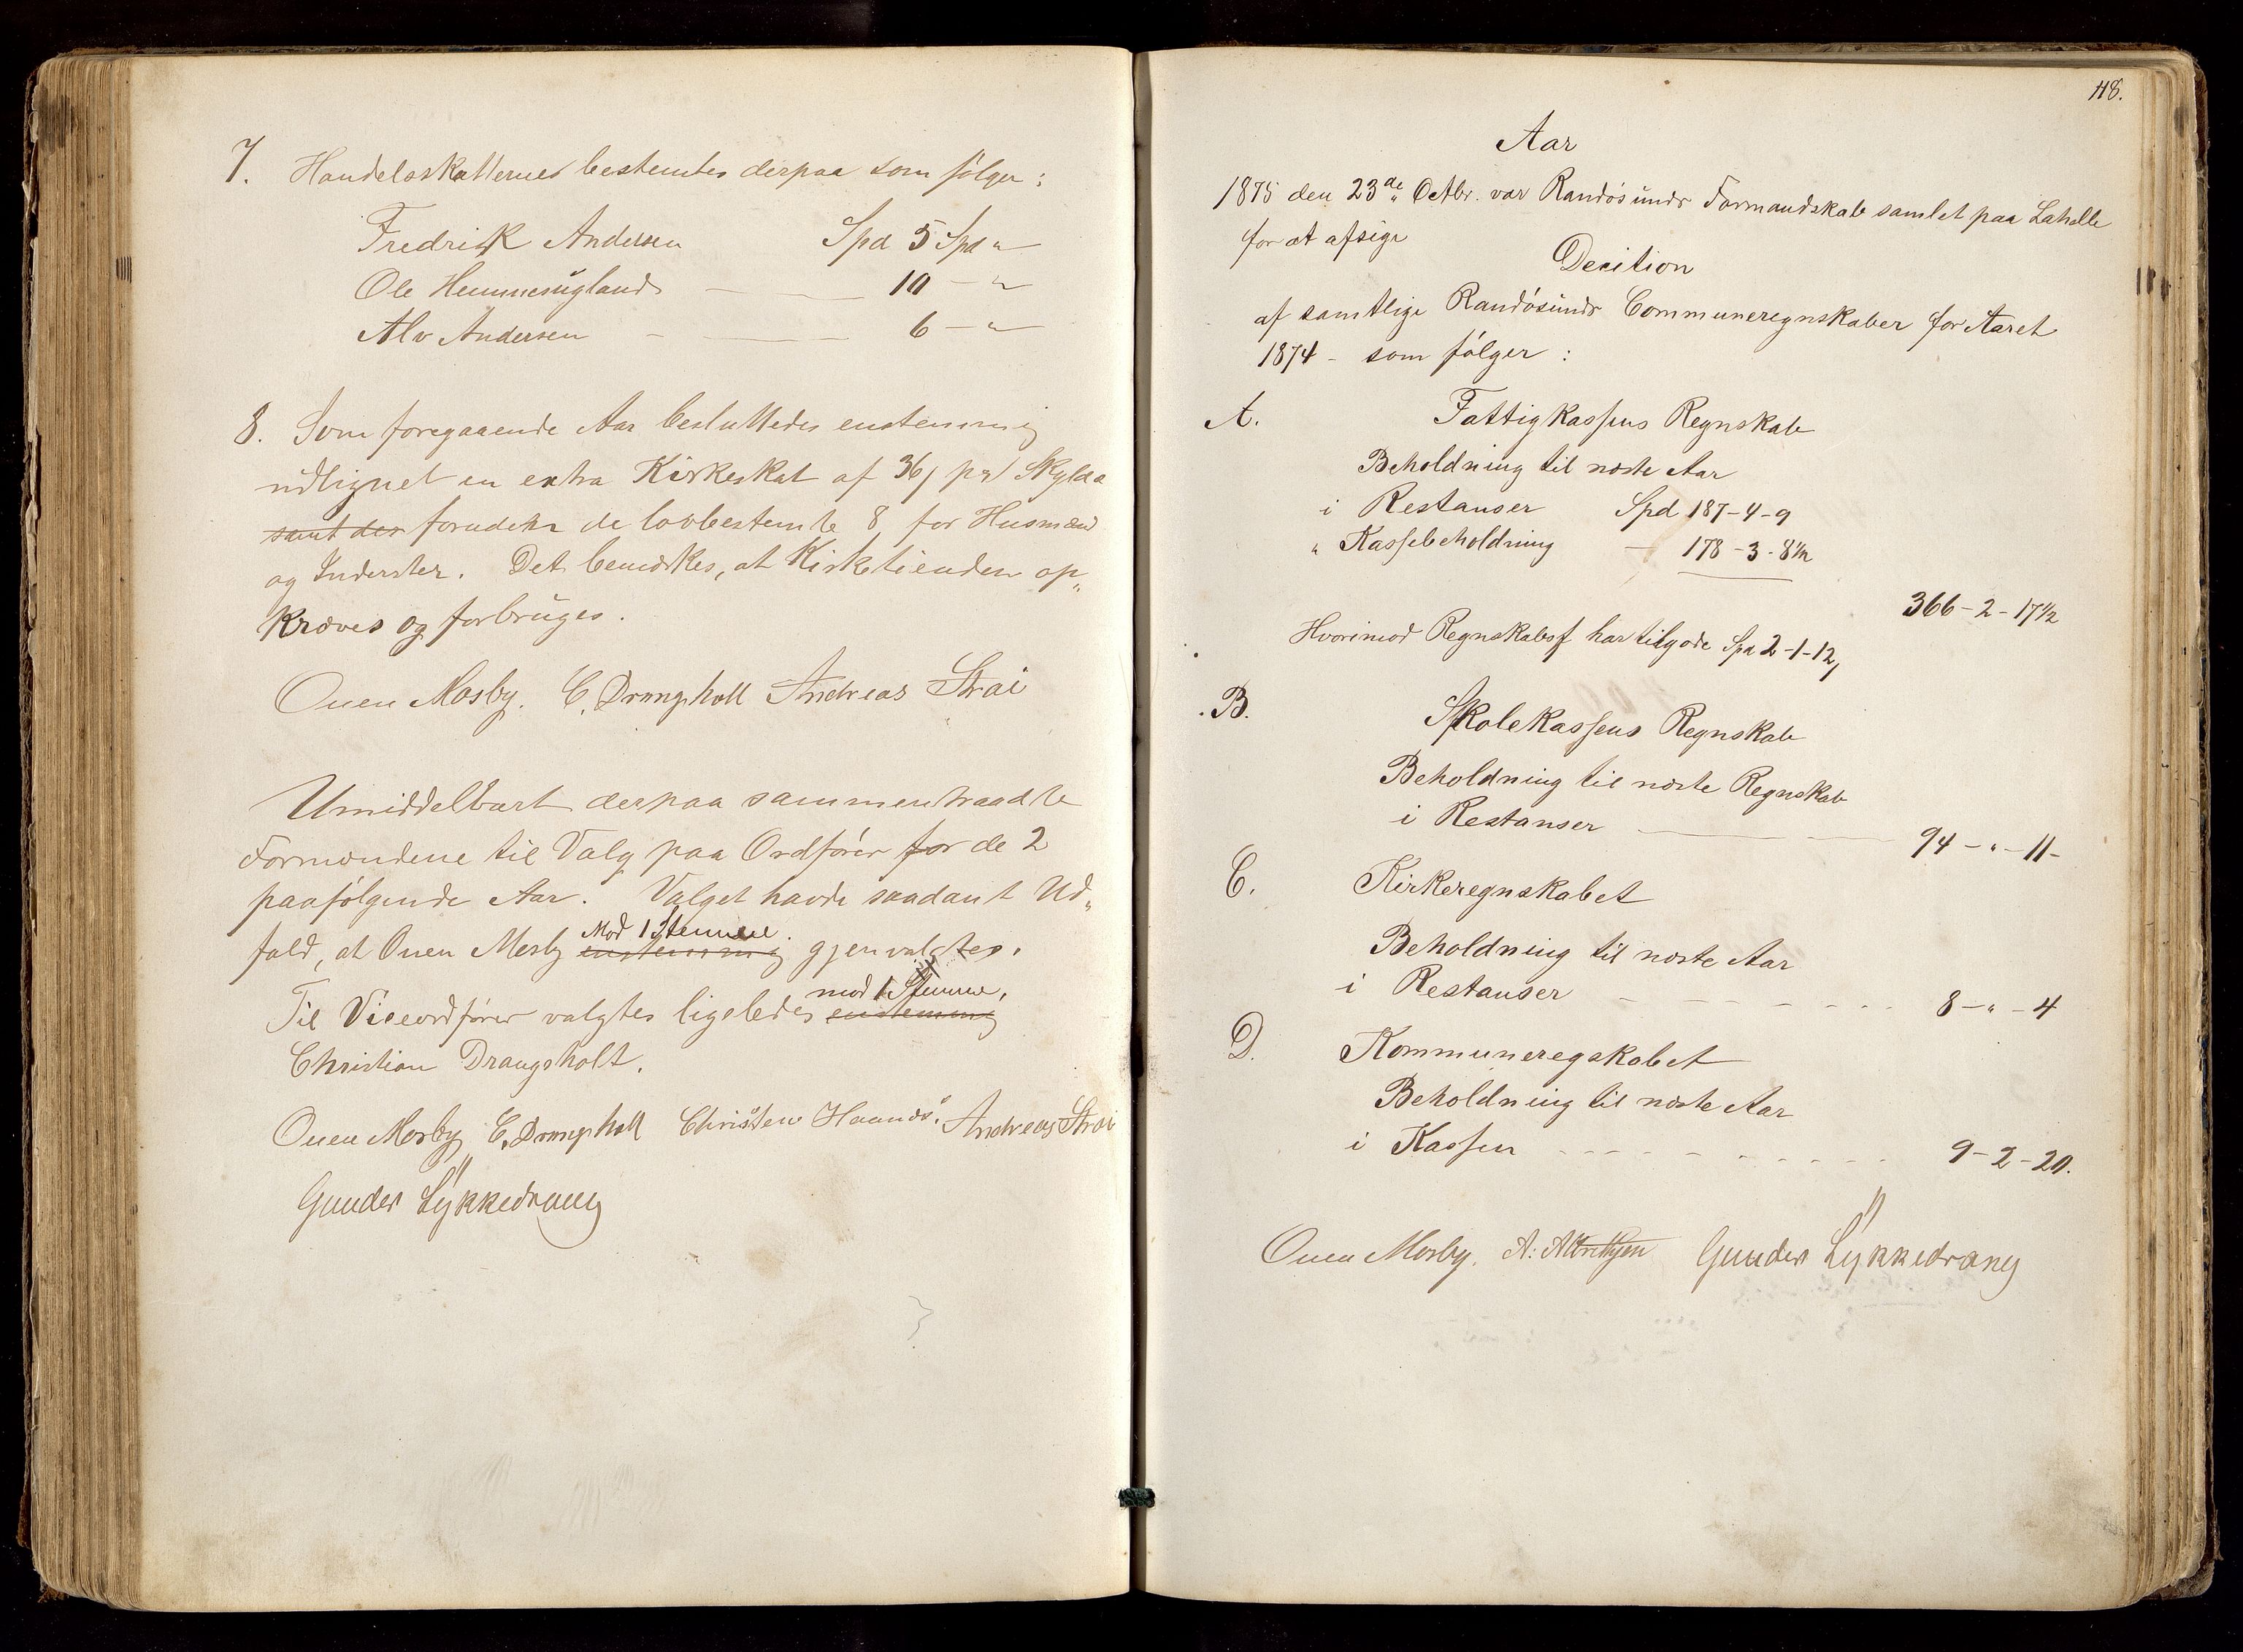 7. Handelsskatternes bestemtes derpaa som følger:
Fredrik Andersen Spd 5 Spd "
Ole Hemmesugland — 10 — "
Alv Andersen — — 6 — "
8. Som foregaaende Aar besluttedes enstemmig
udlignet en extra Kirkeskat af 36 pr Skyldd
samt der foruden de lovbestemte 8 for Husmænd
og Inderster. Det bemærkes, at Kirketienden op„
kræves og forbruges.
Ouen Mosby. C. Drangsholt Andreas Strai
Umiddelbart derpaa sammentraadte
Formændene til Valg paa Ordfører for de 2
paafølgende Aar. Valget havde saadant Ud„
Mod 1 Stemme.
fald, at Ouen Mosby enstemmig gjenvalgtes.
mod 1 Stemme.
Til Viceordfører valgtes ligeledes enstemmig
Christian Drangsholt.
Ouen Mosby C. Drangsholt Christen Haanes. Andreas Strai
Gunder Lykkedrang
118.
Aar
1875 den 23de Octbr. var Randøsunds Formandskab samlet paa Lahelle
for at afsige
Decition
af samtlige Randøsunds Communeregnskaber for Aaret
1874 - som følger :
A. Fattigkassens Regnskab
Beholdning til næste Aar
i Restanser Spd 187-4-9
" Kassebeholdning — 178-3-8½
366-2-17½
Hvorimod Regnskabsf har tilgode Spd 2-1-12,
B. Skolekassens Regnskab
Beholdning til næste Regnskab
i Restanser — 94-"-11-
C. Kirkeregnskabet
Beholdning til næste Aar
i Restanser - - - - - - 8-"-4
D. Kommuneregskabet
Beholdning til næste Aar
i Kassen - - - - - - - - 9-2-20.
Ouen Mosby. A. Albrethsen Gunder Lykkedrang